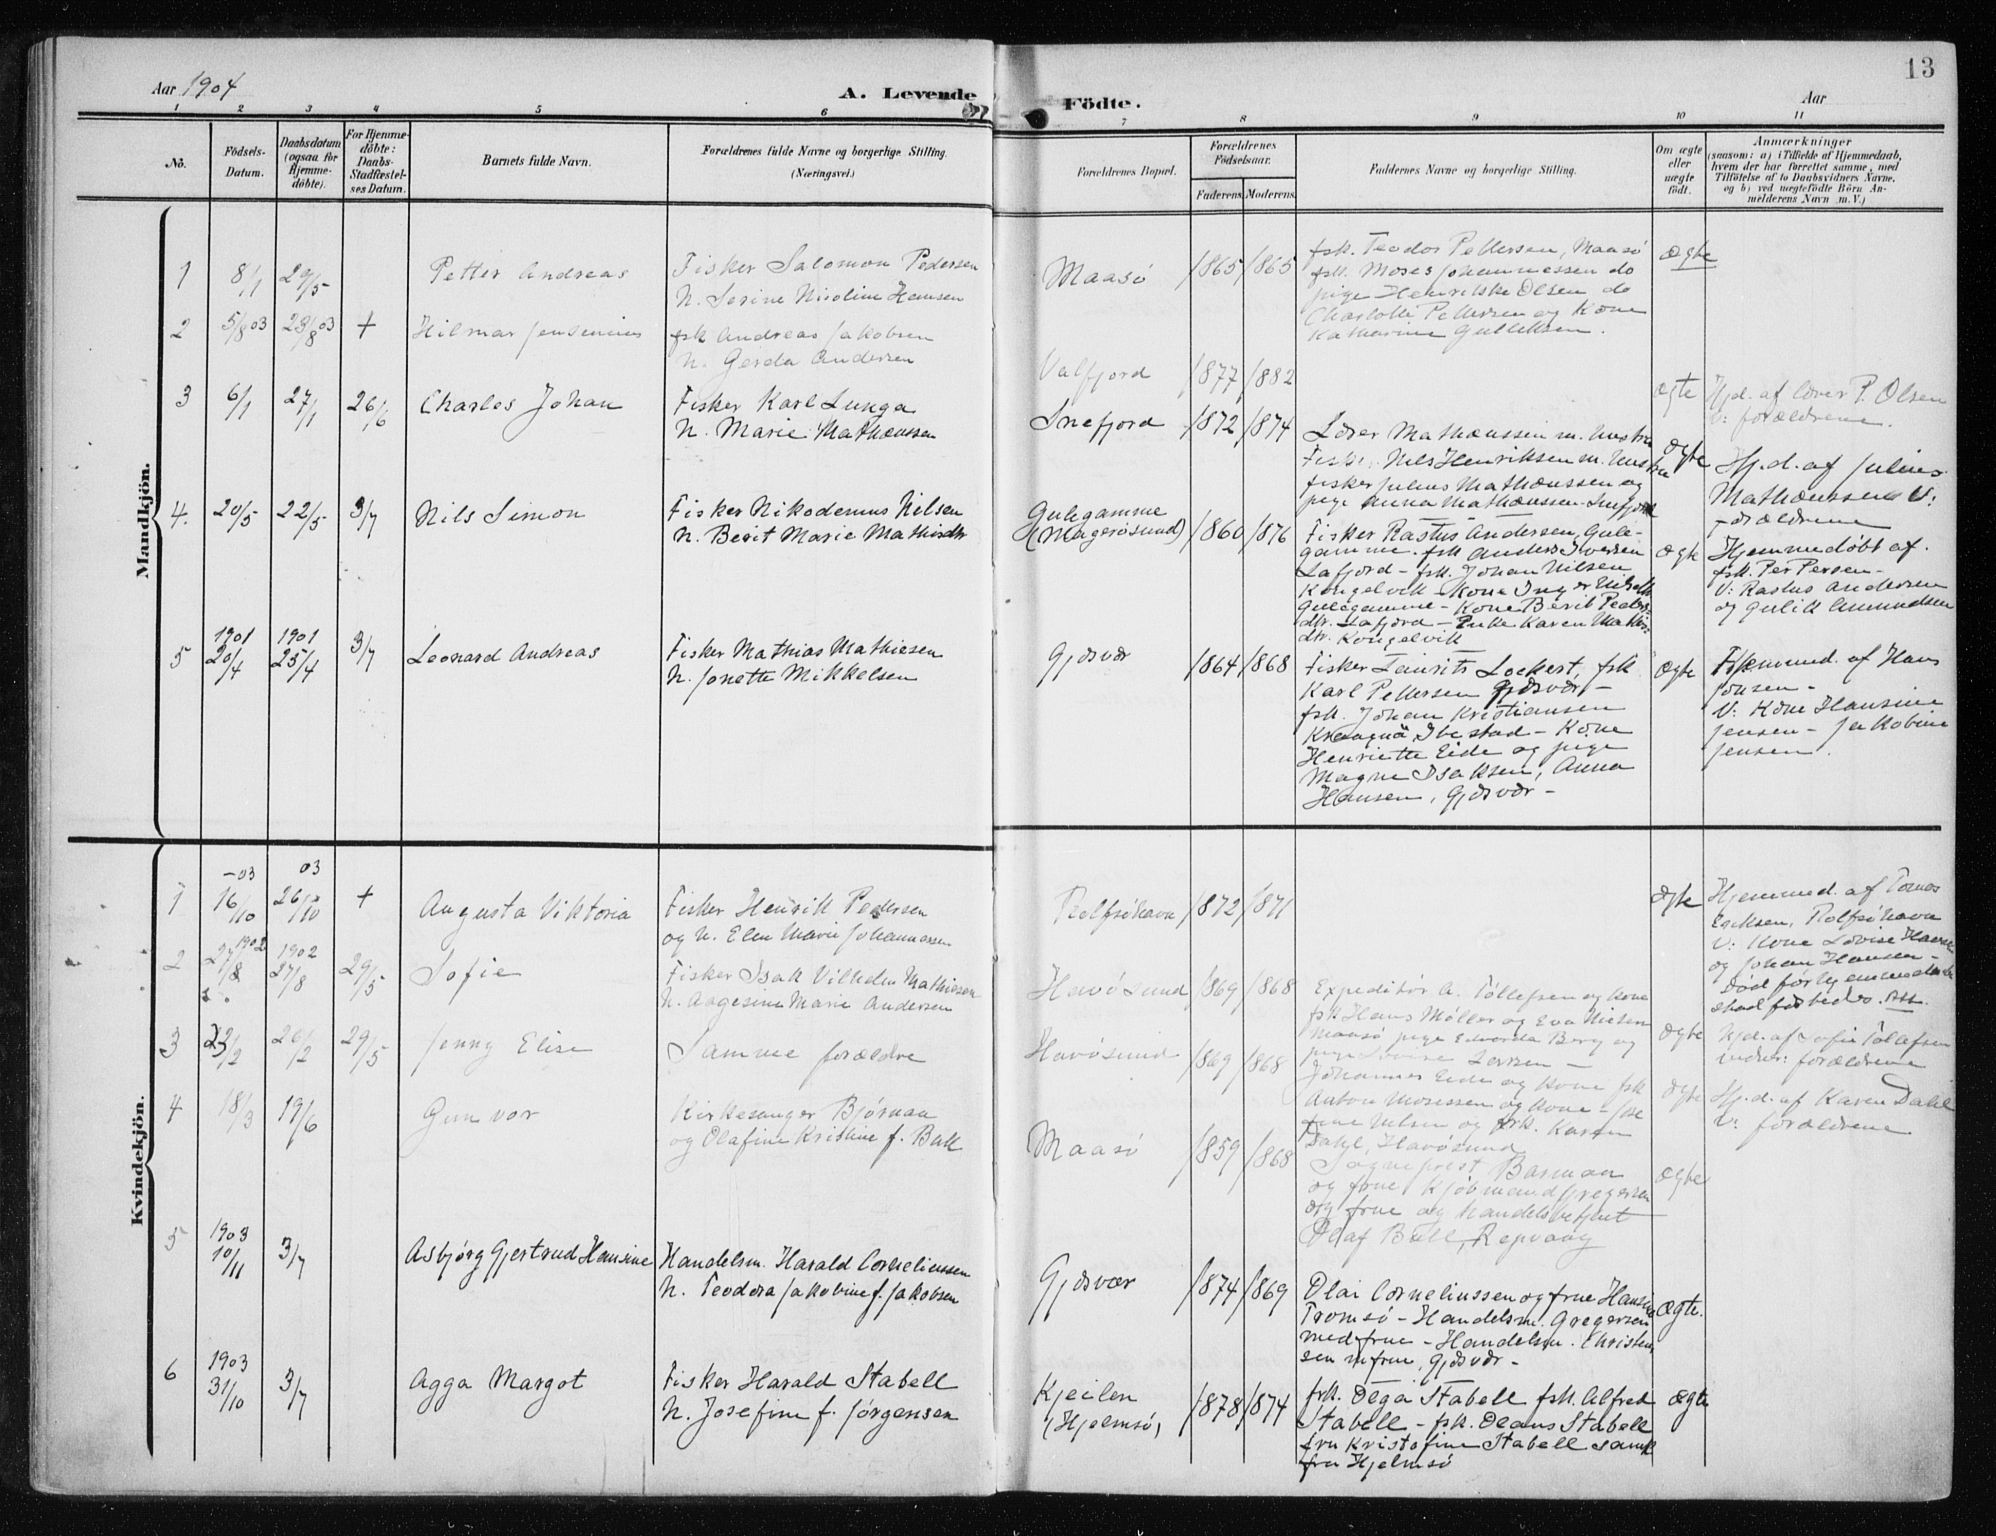 Aar 1904
A. Levende Födte.
Aar
13
1 2 3 4 5 6 7 8 9 10 11
No.
Födsels-Datum.
Daabsdatum (ogsaa for Hjemme-döbte).
For Hjemme-döbte: Daabs-Stadfæstel-ses Datum.
Barnets fulde Navn.
Forældrenes fulde Navne og borgerlige Stilling.
(Næringsvei.)
Forældrenes Bopæl.
Forældrenes Födselsaar.
Faderens. Moderens.
Faddernes Navne og borgerlige Stilling.
Om ægte eller uægte födt.
Anmærkninger
(saasom: a) i Tilfælde af Hjemmedaab,
hvem der har forrettet samme, med
Tilföielse af to Daabsvidners Navne,
og b) ved uægtefödte Börn An-
melderens Navn m. V.)
Mandkjön.
1 8/1 29/5 Petter Andreas
Fisker Salomon Pedersen
h. Serine Nicoline Hansen
Maasö 1865 1865
fsk. Teodor Pettersen, Maasö
fsk. Moses Johannessen do
pige Henrikke Olsen do
Charlotte Pettersen og Kone
Katharine Gulliksen.
ægte
2 5/8 03 23/8 03 + Hilmar Jensenius
fsk Andreas Jakobsen
h. Gerda Andersen
Valfjord 1877 1882
ægte
Hjd. af Lærer P. Olsen
V: forældrene.
3 6/1 27/1 26/6 Charles Johan
Fisker Karl Lunga
h. Marie Mathæussen
Snefjord 1872 1874
Lærer Mathæussen m. hustru
Fisker Nils Henriksen m. hustru
fisker Julius Mathæussen og
pige Anna Mathæussen Snefjord
ægte
Hj.d. af Julius
Mathæussen V:
forældrene
4. 20/5 22/5 3/7 Nils Simon
Fisker Nikodemus Nilsen
h. Berit Marie Mathisdtr
Gulegamme
(Magerösund) 1860 1876
Fisker Rastus Andersen, Gule-
gamme. fsk Anders Iversen
Lafjord - fsk. Johan Nilsen
Kongelvik - Kone Inger Nilsdtr
Gulegamme - Kone Berit Peders-
dtr. Lafjord - Enke Karen Mathis-
dtr. Kongelvik
ægte
Hjemmedøbt af
fsk. Per Persen -
V: Rastus Andersen
og Gulik Amundsen
5 1901 20/4 1901 25/4 3/7 Leonard Andreas
Fisker Mathias Mathiesen
h. Jonette Mikkelsen
Gjæsvær 1864 1868
Fisker Laurits Lockert, fsk
Karl Pettersen Gjæsvær -
fsk. Johan Kristiansen
Ibestad - Kone
Henriette Eide og pige
Magne Isaksen, Anna
Hansen, Gjæsvær -
ægte
Hjemmed. af Hans
Jonsen -
V: Kone Hansine
Jensen - Jakobine
Jensen.
Kvindekjön.
1 -03 16/10 03 26/10 + Augusta Viktoria
Fisker Henrik Pedersen
og h. Elen Marie Johannessen
Rolfsöhavn 1872 1871
ægte
Hjemmed. af Tomas
Eriksen, Rolfsöhavn
V: Kone Lovise Hansen
og Johan Hansen -
Död før hjemmedaaben
stadfæstedes.
2 27/8 1902 1902 27/8 29/5 Sofie
Fisker Isak Vilhelm Mathiesen
h. Aagesine Marie Andersen
Havösund 1869 1868
Expeditör A. Tollefsen og Kone
fsk Hans Möller og Eva Nielsen
Maasö pige Edvarda Berg og
pige Lovise Larsen -
ægte
Hjd. af Sofie Tollefsen
vidner: forældrene
3 23/2 26/2 29/5 Jenny Elise
Samme forældre
Havösund 1869 1868
Johannes Eide og Kone fsk
Anton Mosessen og Kone - Jose
fine Nilsen og frk. Karen
Dahl, Havösund
ægte
Hj.d. af Karen Dahl
V: forældrene
4 18/3 19/6 Gunvor
Kirkesanger Bjørnan
og Olafine Kristine f. Bull
Maasö 1859 1868
Sogneprest Barman
og frue Kjöbmand Gregersen
og frue og handelsbetjent
Olaf Bull, Repvaag
ægte
5 1903 10/11 3/7 Asbjørg Gjertrud Hansine
Handelsm. Harald Corneliussen
h. Teodora Jakobine f. Jakobsen
Gjæsvær 1874 1869
Olai Corneliussen og frue Hansine
Tromsö - Handelsm. Gregersen
med frue - Handelsm. Christen
sen m frue, Gjæsvær -
ægte.
6 1903 31/10 3/7 Agga Margot
Fisker Harald Stabell
h. Josefine f. Jørgensen
Kjeilen
(Hjelmsö) 1878 1874
frk. Dega Stabell fsk. Alfred
Stabell - fsk. Oleans Stabell
fru Kristofine Stabell samt.
fra Hjelmsö
ægte